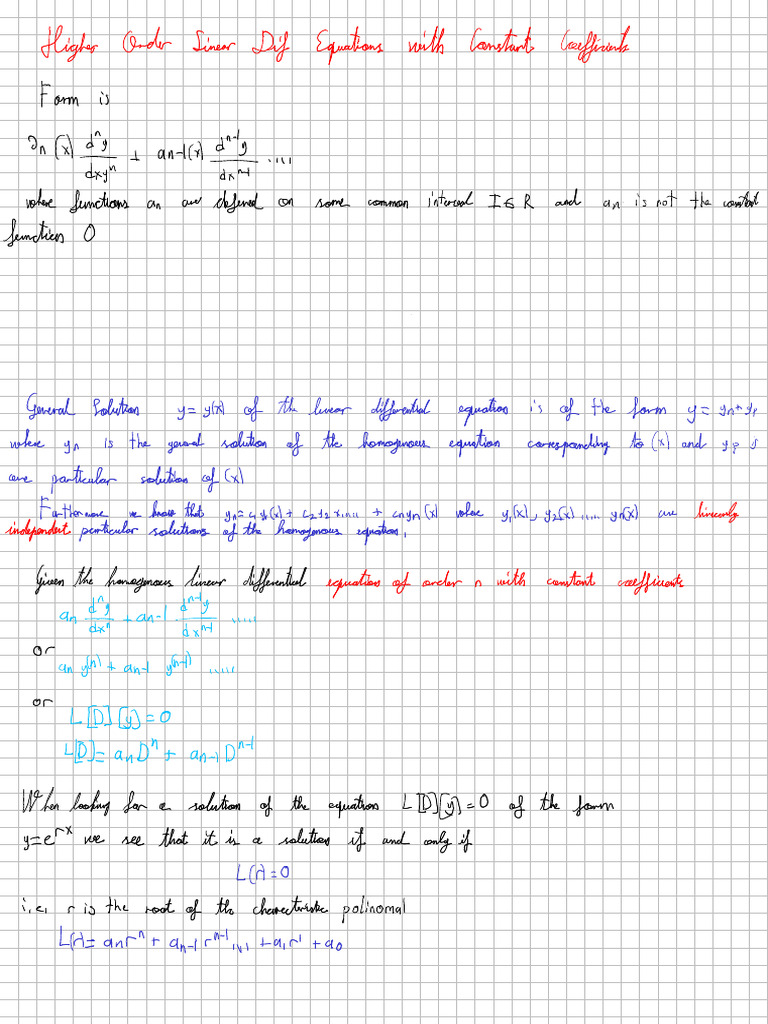 Higher Order Linear Dif Equations with Constant Coefficients
Form is
a_n (x) d^n y / dxy^n + an-1(x) d^{n-1} y / dx^{n-1} .....
where functions an are defined on some common interval I ∈ R and an is not the constant
function 0
General Solution y = y(x) of the linear differential equation is of the form y = yn + yp
where yn is the general solution of the homogenous equation corresponding to (x) and yp is
one particular solution of (x)
Furthermore we know that yn = c1 y1(x) + c2 y2 x ..... + cn yn (x) where y1(x), y2(x) ..... yn(x) are linearly
independent particular solutions of the homogenous equation.
Given the homogenous linear differential equation of order n with constant coefficients
an d^n y / dx^n + an-1 d^{n-1} y / dx^{n-1} .....
or
an y^(n) + an-1 y^(n-1) .....
or
L[D](y) = 0
L[D] = an D^n + an-1 D^{n-1}
When looking for a solution of the equation L[D](y) = 0 of the form
y = e^{rx} we see that it is a solution if and only if
L(r) = 0
i.e, r is the root of the characteristic polinomal
L(r) = an r^n + an-1 r^{n-1} .... + a1 r^1 + a0